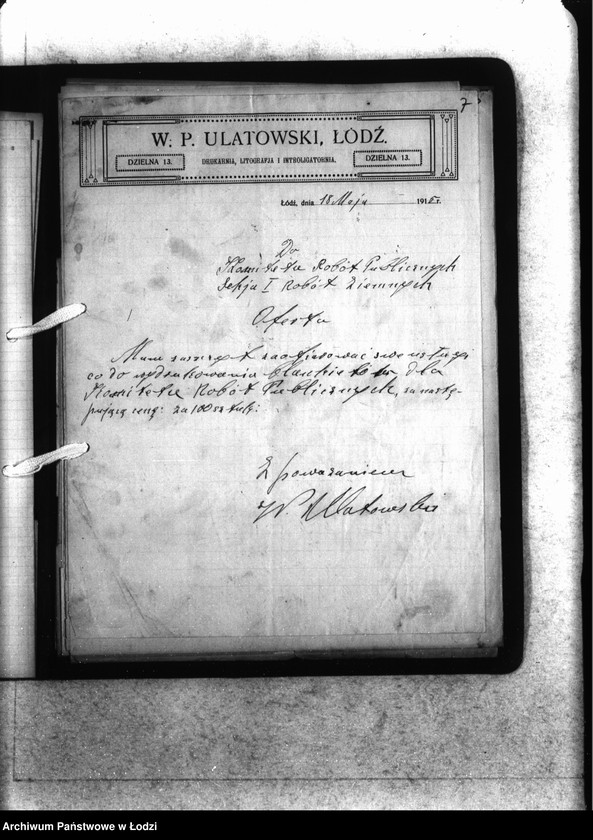 7
W. P. ULATOWSKI, ŁÓDŹ.
DZIELNA 13.
DRUKARNIA, LITOGRAFJA I INTROLIGATORNIA.
DZIELNA 13.
Łódź, dnia 18 Maja 1915 r.
Do
Komitetu Robót Publicznych
Sekja I Robót Ziemnych
Oferta
Mam zaszczyt zaofiarować swe usługi
co do wydrukowania blankietów dla
Komitetu Robót Publicznych, za nastę-
pującą cenę: za 100 sztuk:
Z poważaniem
W. P. Ulatowski
Archiwum Państwowe w Łodzi